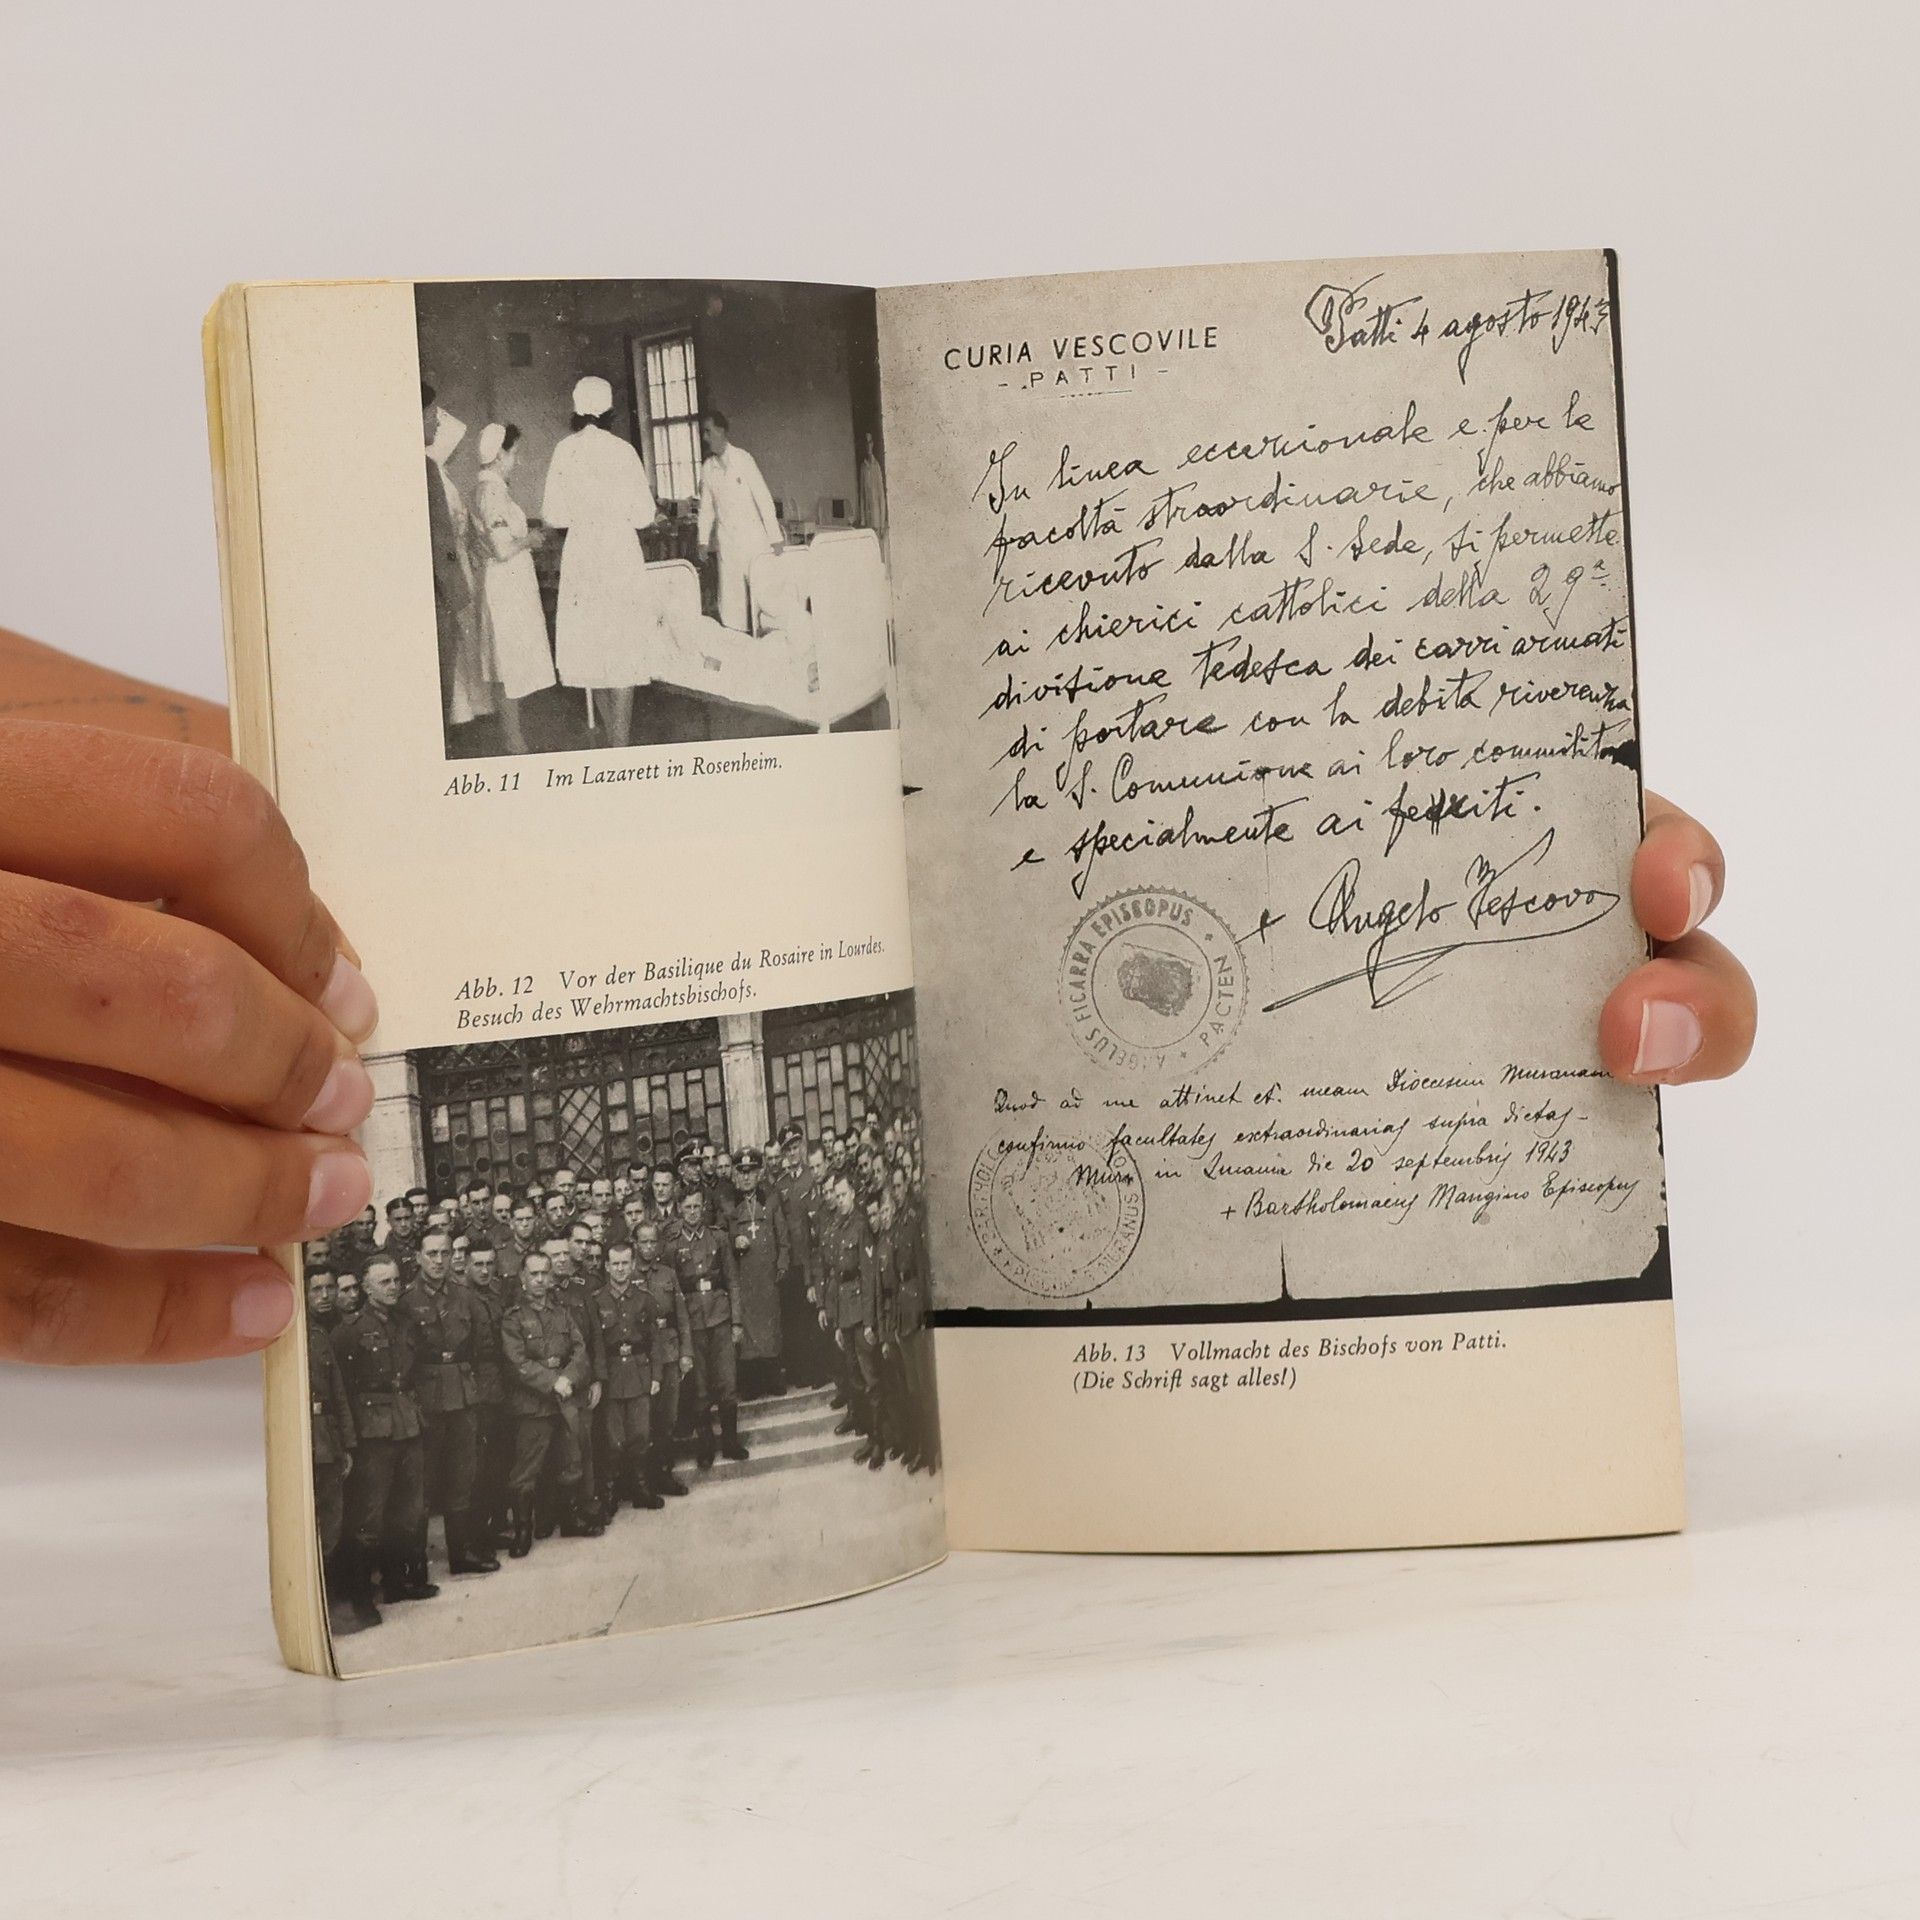 Abb. 11 Im Lazarett in Rosenheim.
Abb. 12 Vor der Basilique du Rosaire in Lourdes.
Besuch des Wehrmachtsbischofs.
CURIA VESCOVILE
- PATTI -
Patti 4 agosto 1943
In linea eccezionale e per le
facoltà straordinarie, che abbiamo
ricevuto dalla S. Sede, si permette
ai chierici cattolici della 29ª
divisione tedesca dei carri armati
di portare con la debita riverenza
la S. Comunione ai loro commilitoni
e specialmente ai feriti.
+ Angelo Vescovo
ANGELUS FICARRA EPISCOPUS + PACTEN +
Quod ad me attinet et meam Dioecesim Muranam
confirmo facultates extraordinarias supra dictas-
Muri in Lucania die 20 septembris 1943
+ Bartholomaeus Mangino Episcopus
MURANUS
Abb. 13 Vollmacht des Bischofs von Patti.
(Die Schrift sagt alles!)